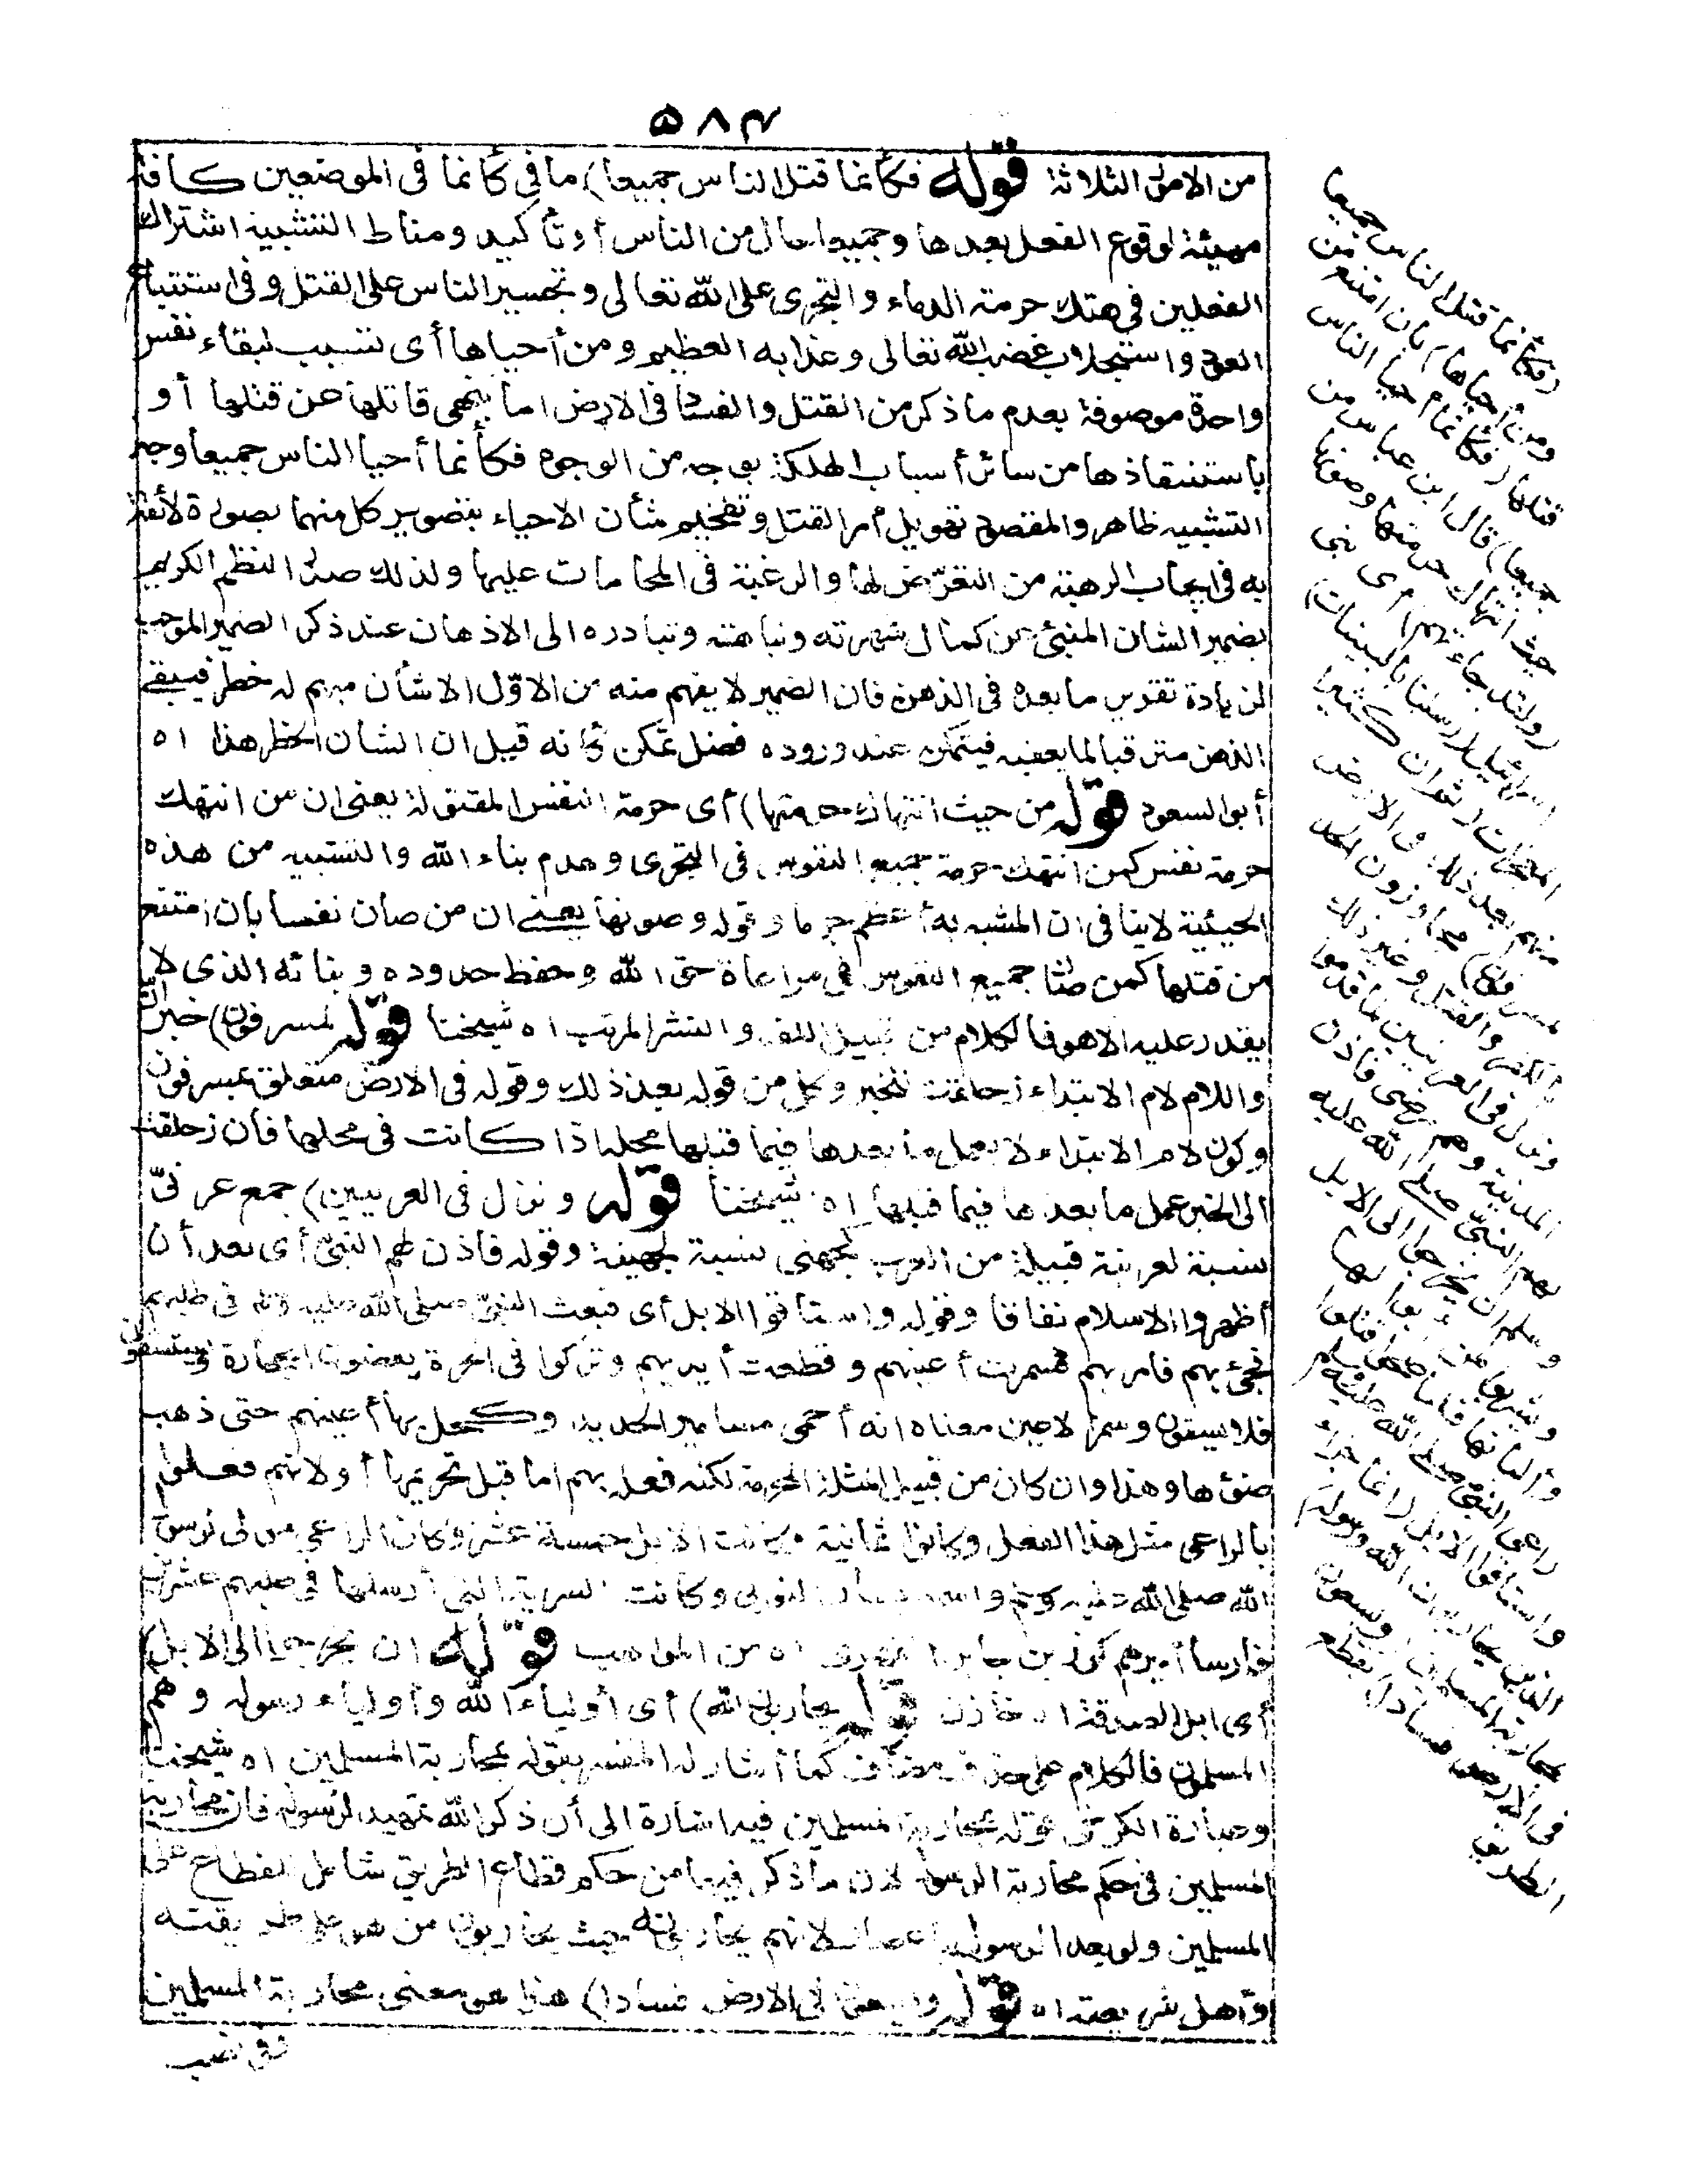 ٥٨٣
من الامور الثلاثة قوله فكأنما قتل الناس جميعا) ما في كأنما في الموضعين كافة
مهيئة لوقوع الفعل بعدها وجميعا حال من الناس أو تأكيد ومناط التشبيه اشتراك
الفعلين في هتك حرمة الدماء والتجرى على الله تعالى وتجسير الناس على القتل وفي استتباع
القود واستجلاب غضب الله تعالى وعذابه العظيم ومن أحياها أى تسبب لبقاء نفس
واحدة موصوفة بعدم ما ذكر من القتل والفساد في الارض اما بنهى قاتلها عن قتلها أو
باستنقاذها من سائر أسباب الهلكة بوجه من الوجوه فكأنما أحيا الناس جميعا وجه
التشبيه ظاهر والمقصود تهويل أمر القتل وتفخيم شأن الاحياء بتصوير كل منهما بصورة لائقة
به في ايجاب الرهبة من التعرّض لها والرغبة في المحامات عليها ولذلك صدر النظم الكريم
بضمير الشان المنبئ عن كمال شهرته ونباهته وتبادره الى الاذهان عند ذكر الضمير الموجب
لزيادة تقرير ما بعده في الذهن فان الضمير لا يفهم منه من الاوّل الا شأن مبهم له خطر فيبقى
الذهن مترقبا لما يعقبه فيتمكن عند وروده فضل تمكن كأنه قيل ان الشان الخطر هذا اه
أبو السعود قوله من حيث انتهاك حرمتها) أى حرمة النفس المقتولة يعنى ان من انتهك
حرمة نفس كمن انتهك حرمة جميع النفوس في التجرى وهدم بناء الله والتشبيه من هذه
الحيثية لا ينافى ان المشبه به أعظم جرما وقوله وصونها يعنى ان من صان نفسا بان امتنع
من قتلها كمن صان جميع النفوس في مراعاة حق الله وحفظ حدوده وبنائه الذى لا
يقدر عليه الا هو فالكلام من قبيل اللف والنشر المرتب اه شيخنا قوله لمسرفون) خبر ان
واللام لام الابتداء زحلقت للخبر وكل من قوله بعد ذلك وقوله في الارض متعلق بمسرفون
وكون لام الابتداء لا يعمل ما بعدها فيما قبلها محله اذا كانت في محلها فان زحلقت
الى الخبر عمل ما بعدها فيما قبلها اه شيخنا قوله ونزل فى العرنيين) جمع عرنىّ
نسبة لعرينة قبيلة من العرب كجهنى نسبة لجهينة وقوله فاذن لهم النبىّ أى بعد أن
أظهروا الاسلام نفاقا وقوله واستاقوا الابل أى فبعث النبىّ صلى الله عليه وسلم فى طلبهم
فجئ بهم فامر بهم فسمرت أعينهم وقطعت أيديهم وتركوا فى الحرة يعضون الحجارة ويستسقون
فلا يسقون وسمر الاعين معناه انه أحمى مسامير الحديد وكحل بها أعينهم حتى ذهب
ضوءها وهذا وان كان من قبيل المثلة المحرمة لكنه فعله بهم اما قبل تحريمها أو لانهم فعلوا
بالراعى مثل هذا الفعل وكانوا ثمانية وكانت الابل خمسة عشر وكان الراعى مولى لرسول
الله صلى الله عليه وسلم واسمه يسار النوبى وكانت السرية التى أرسلها فى طلبهم عشرين
فارسا أميرهم كرز بن جابر الفهرى اه من المواهب قوله ان يخرجوا الى الابل)
أى ابل الصدقة اه خازن قوله يحاربون الله) أى أولياء الله وأولياء رسوله وهم
المسلمون فالكلام على حذف مضاف كما أشار له المفسر بقوله بمحاربة المسلمين اه شيخنا
وعبارة الكرخى قوله بمحاربة المسلمين فيه اشارة الى أن ذكر الله تمهيد لرسوله فان محاربة
المسلمين فى حكم محاربة الرسول لان ما ذكر فيها من حكم قطاع الطريق شامل للقطاع على
المسلمين ولو بعد الرسول بأعصار لانهم يحاربونه حيث يحاربون من هو على طريقته
وأهل شريعته اه قوله ويسعون فى الارض فسادا) هذا هو معنى محاربة المسلمين
(فكأنما قتل الناس جميعا
ومن أحياها) بان امتنع من
قتلها (فكأنما أحيا الناس
جميعا) قال ابن عباس من
حيث انتهاك حرمتها وصونها
(ولقد جاءتهم) أى بنى
اسرائيل (رسلنا بالبينات)
المعجزات (ثم ان كثيرا
منهم بعد ذلك فى الارض
لمسرفون) مجاوزون الحد
بالكفر والقتل وغير ذلك
ونزل فى العرنيين لما قدموا
المدينة وهم مرضى فاذن
لهم النبىّ صلى الله عليه
وسلم ان يخرجوا الى الابل
ويشربوا من أبوالها
وألبانها فلما صحوا قتلوا
راعى النبى صلى الله عليه وسلم
واستاقوا الابل (انما جزاء
الذين يحاربون الله ورسوله)
بمحاربة المسلمين (ويسعون
فى الارض فسادا) بقطع
الطريق